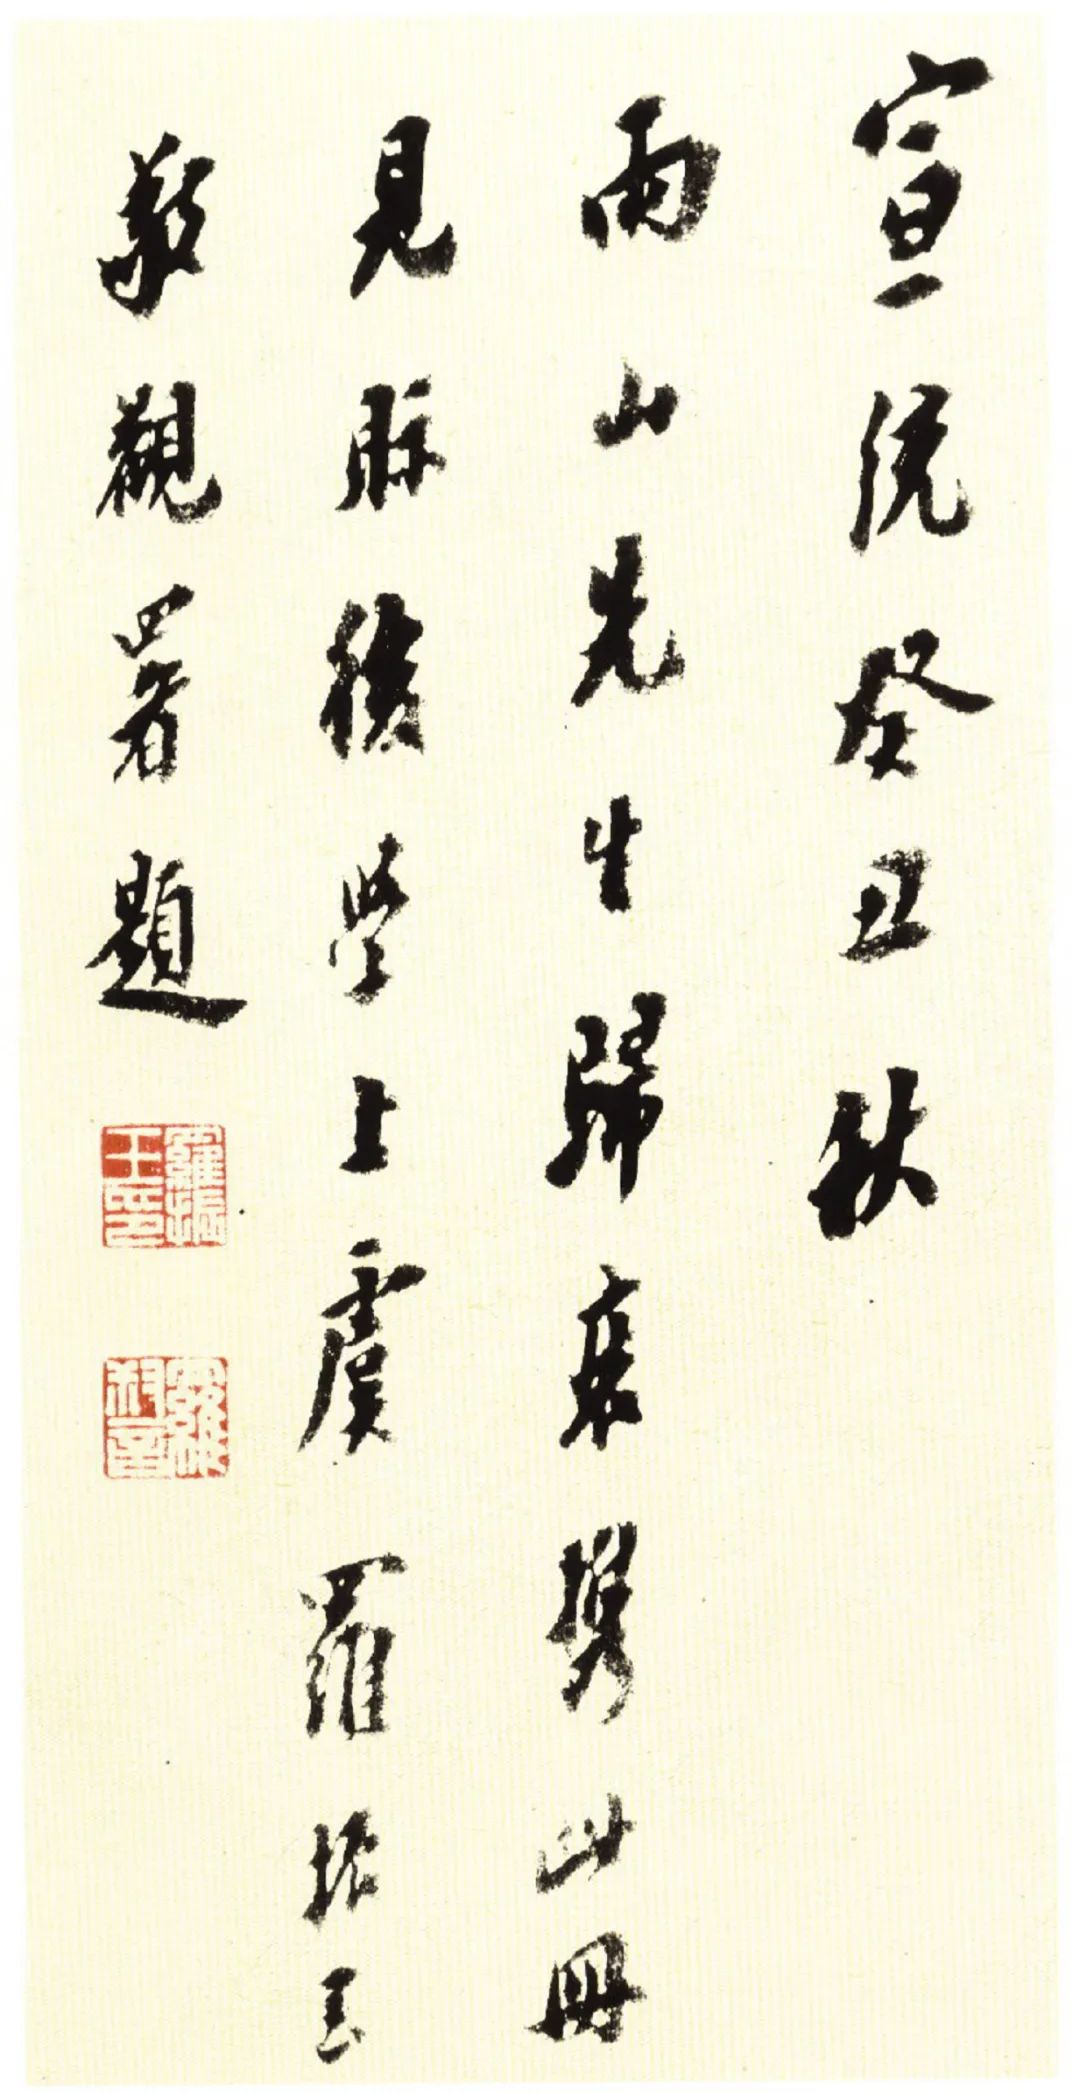 宣統癸丑秋
雨山先生歸來攜此冊
見眎後學上虞羅振玉
敬觀署題
羅振玉印
羅叔言